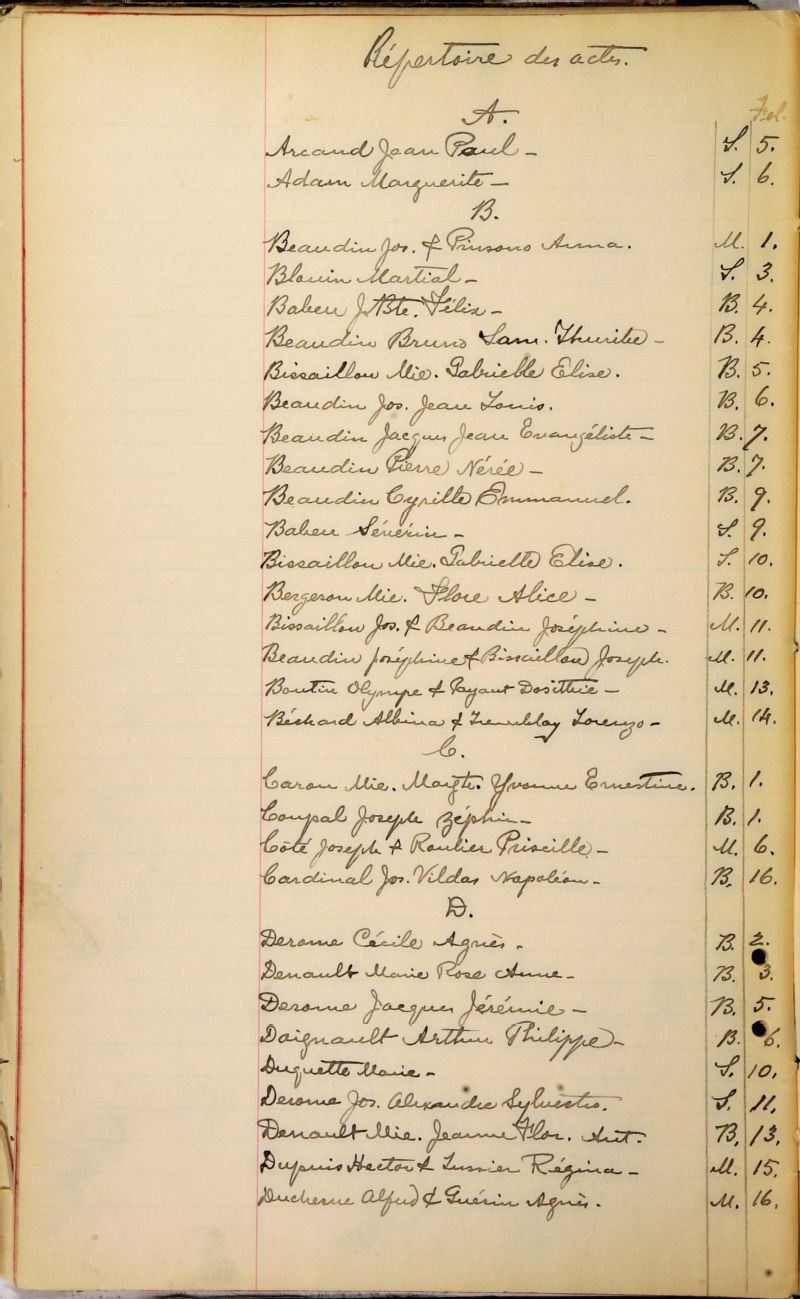 Répertoire des actes.
A. Fol.
Arcand Jean Paul - S. 5.
Adam Marguerite - S. 6.
B.
Beaudin Jos. & Prinsono Anna. M. 1.
Blouin Martial - S. 3.
Babeu J. Bte. Félix - B. 4.
Beaudin Bruno Sam. Thuribe - B. 4.
Bissaillon Mie. Gabrielle Elise. B. 5.
Beaudin Jos. Jean Louis. B. 6.
Beaudin Jacques Jean Evangéliste - B. 7.
Beaudin Pierre Nérée - B. 7.
Beaudin Cyrille Emmanuel. B. 9.
Babeu Séverin - S. 9.
Bissaillon Mie. Gabrielle Elise. S. 10.
Bergeron Mie. Flore Alice - B. 10.
Bissaillon Jos. & Beaudin Joséphine - M. 11.
Beaudin Joséphine & Bissaillon Joseph. M. 11.
Boutin Olympe & Payant Dosithée - M. 13.
Béchard Albina & Tremblay Lorenzo - M. 14.
C.
Caron Mie. Margte. Yvonne Ernestine. B. 1.
Coupal Joseph Zéphir - B. 1.
Côté Joseph & Roulier Priscille - M. 6.
Cardinal Jos. Vildas Napoléon - B. 16.
D.
Derome Cécile Agnès - B. 2.
Denault Marie Rose Anne - B. 3.
Derome Jacques Jérémie - B. 5.
Daignault Arthur Philippe - B. 6.
Duquette Marie - S. 10.
Derome Jos. Alexandre Sylvestre. S. 11.
Denault Mie. Jeanne Flor. Ant. B. 13.
Dupuis Hector & Lussier Régina - M. 15.
Duchesne Alfred & Guérin Agnès. M. 16.